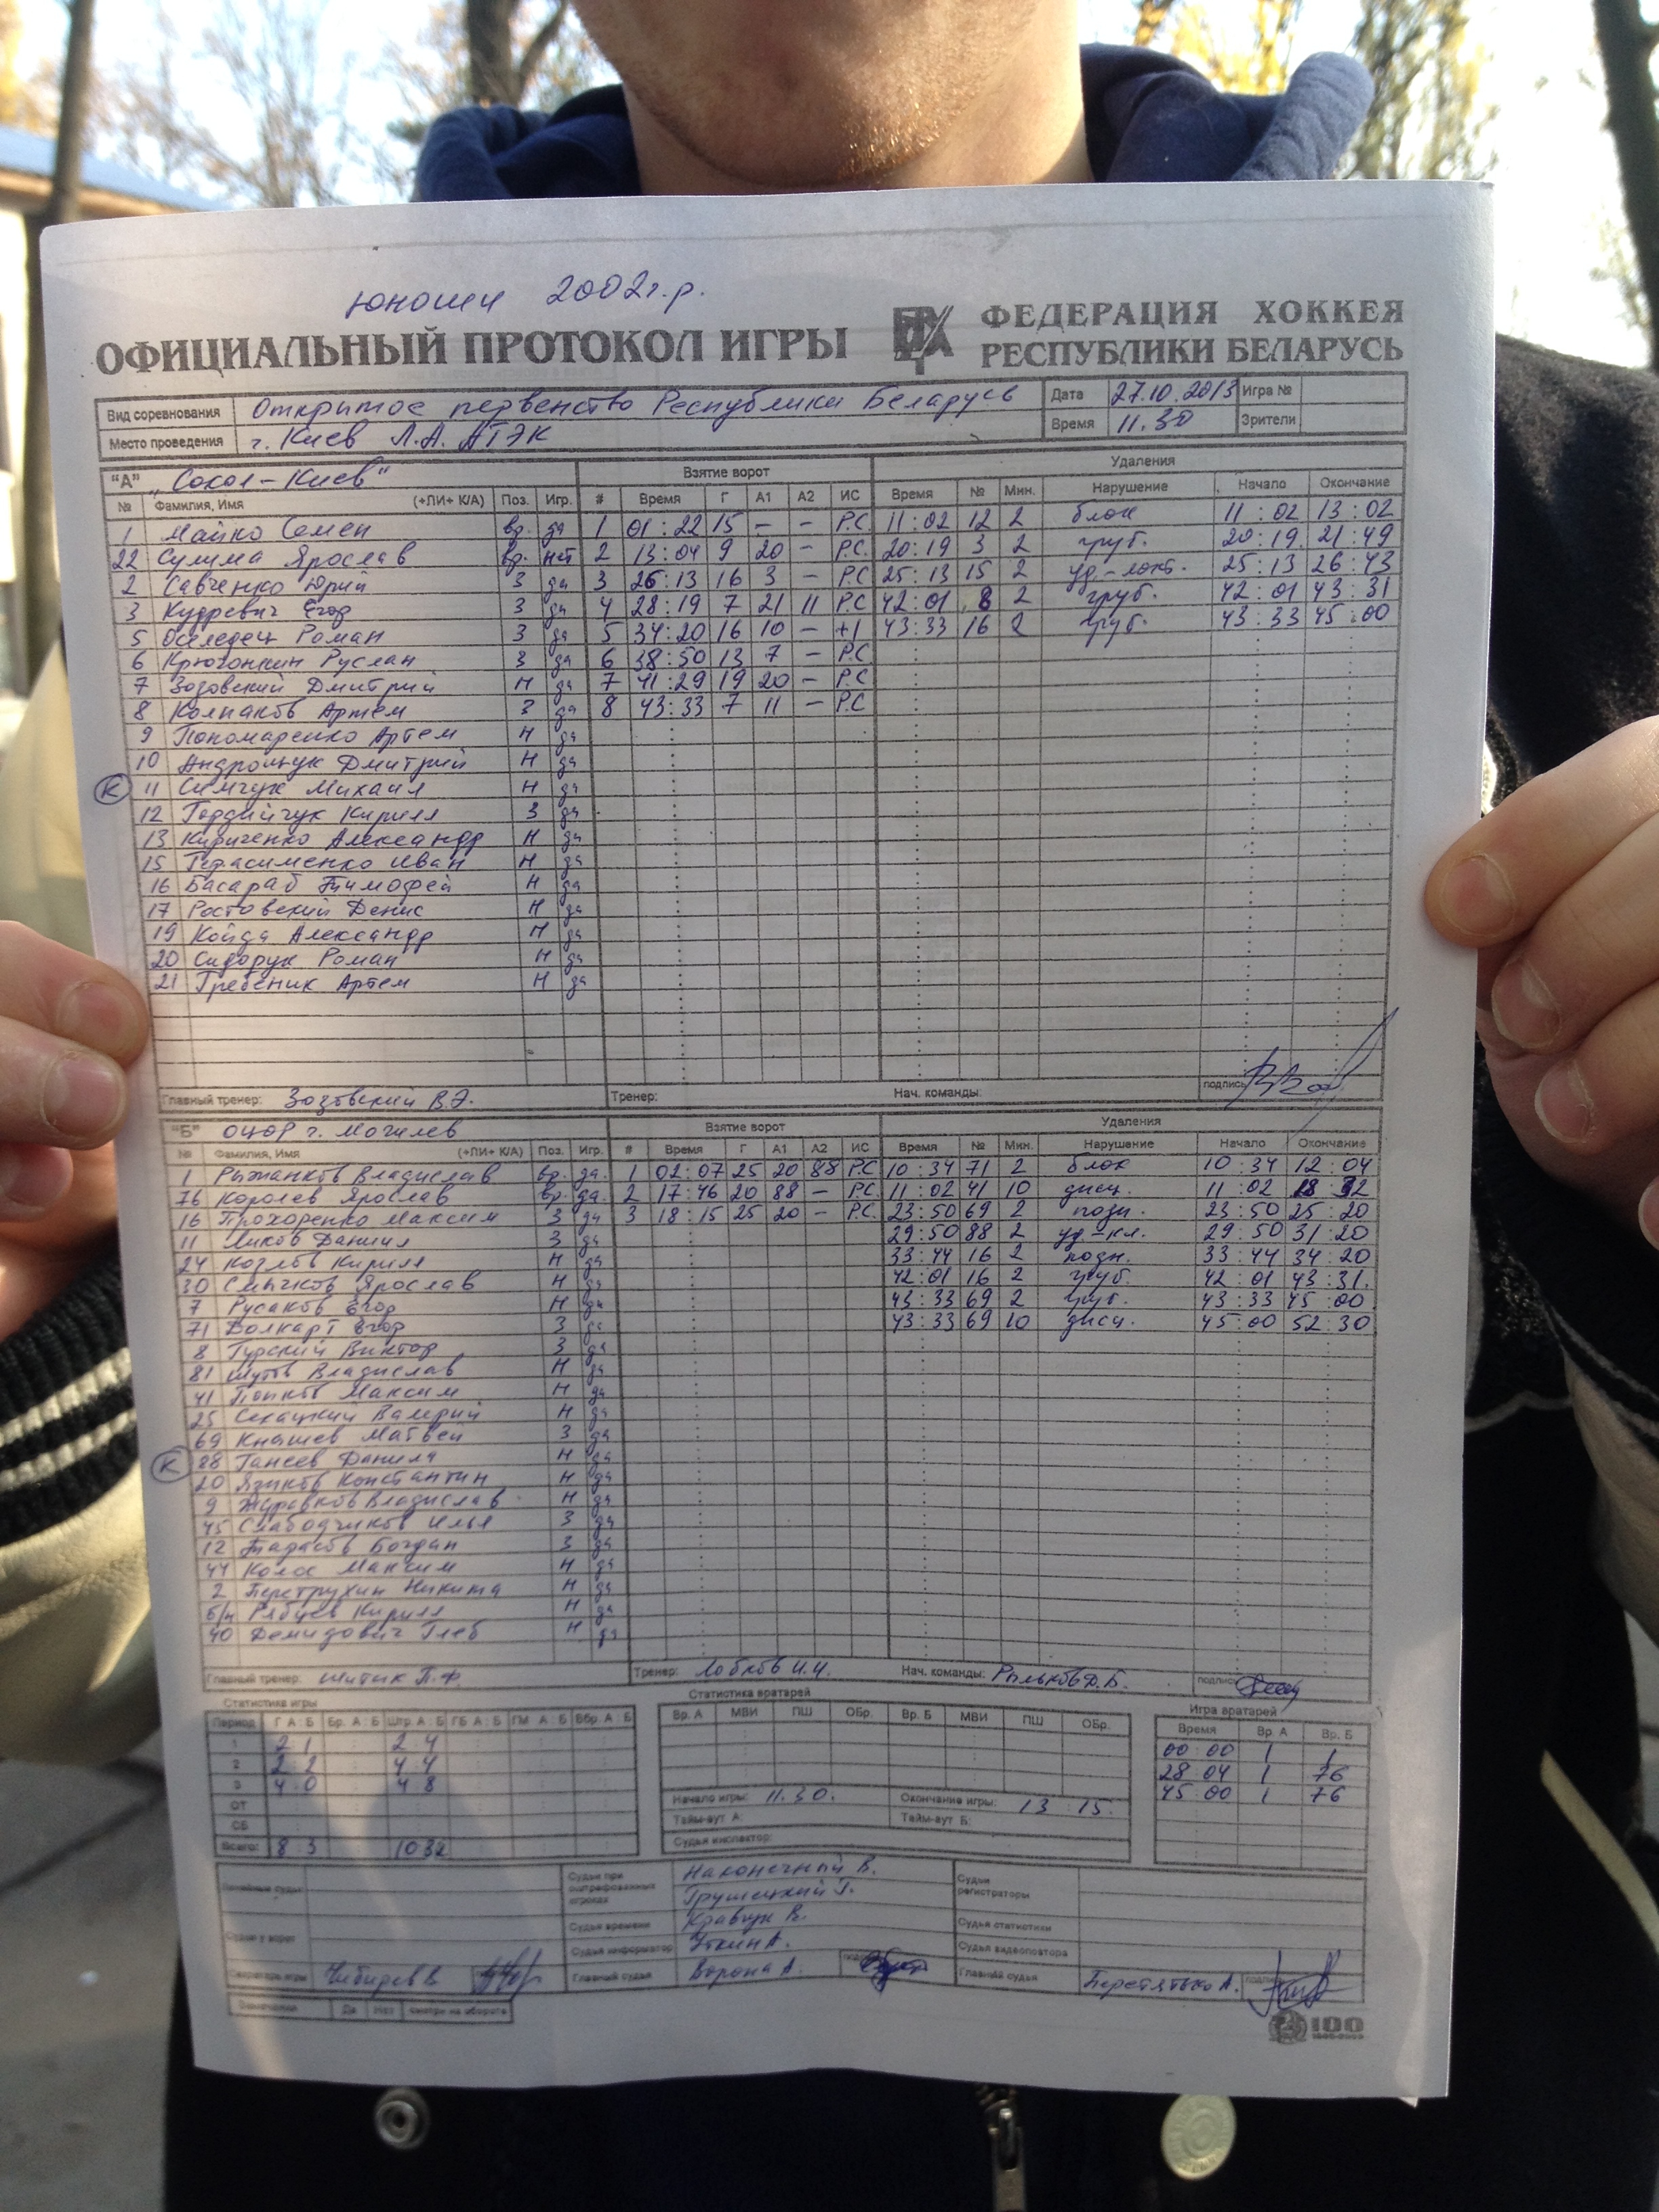 юноши 2002г.р.
ОФИЦИАЛЬНЫЙ ПРОТОКОЛ ИГРЫ
ФЕДЕРАЦИЯ ХОККЕЯ
РЕСПУБЛИКИ БЕЛАРУСЬ
Вид соревнования Открытое первенство Республики Беларусь Дата 27.10.2013 Игра №
Место проведения г. Киев Л.А. АТЭК Время 11.30 Зрители
"А" „Сокол-Киев" Взятие ворот Удаления
№ Фамилия, Имя (+ЛИ+ К/А) Поз. Игр. # Время Г А1 А2 ИС Время № Мин. Нарушение Начало Окончание
1 Майко Семен вр. да 1 01:22 15 - - Р.С. 11:02 12 2 блок 11:02 13:02
22 Сулима Ярослав вр. нет 2 13:04 9 20 - Р.С. 20:19 3 2 груб. 20:19 21:49
2 Савченко Юрий З да 3 25:13 16 3 - Р.С 25:13 15 2 уд.-локт. 25:13 26:43
3 Кудревич Егор З да 4 28:19 7 21 11 Р.С 42:01 8 2 груб. 42:01 43:31
5 Оселедец Роман З да 5 34:20 16 10 - +1 43:33 16 2 груб. 43:33 45:00
6 Крючонкин Руслан З да 6 38:50 13 7 - Р.С
7 Зозовский Дмитрий Н да 7 41:29 19 20 - Р.С
8 Колпаков Артем З да 8 43:33 7 11 - Р.С
9 Пономаренко Артем Н да
10 Андрощук Дмитрий Н да
К 11 Симчук Михаил Н да
12 Гордийчук Кирилл З да
13 Кириченко Александр Н да
15 Герасименко Иван Н да
16 Басараб Тимофей Н да
17 Ростовский Денис Н да
19 Койда Александр Н да
20 Сидорук Роман Н да
21 Гребеник Артем Н да
Главный тренер: Зозовский В.Э. Тренер: Нач. команды: подпись
"Б" ОЦОР г. Могилев Взятие ворот Удаления
№ Фамилия, Имя (+ЛИ+ К/А) Поз. Игр. # Время Г А1 А2 ИС Время № Мин. Нарушение Начало Окончание
1 Рыжанков Владислав вр. да. 1 02:07 25 20 88 Р.С 10:34 71 2 блок 10:34 12:04
76 Королев Ярослав вр. да. 2 17:46 20 88 - Р.С. 11:02 41 10 дисц. 11:02
16 Прохоренко Максим З да 3 18:15 25 20 - Р.С. 23:50 69 2 23:50 25:20
11 Даниил З да 29:50 88 2 уд-кл. 29:50 31:20
24 Козлов Кирилл Н да 33:44 16 2 33:44 34:20
30 Смычков Ярослав Н да 42:01 16 2 груб. 42:01 43:31.
7 Русаков Егор Н да 43:33 69 2 груб. 43:33 45:00
71 Болкарт Егор З да 43:33 69 10 дисц. 45:00 52:30
8 Гурский Виктор З да
81 Шутов Владислав Н да
41 Попков Максим Н да
25 Секацкий Валерий Н да
69 Кнышев Матвей З да
К 88 Ганеев Данила Н да
20 Языков Константин Н да
9 Журавков Владислав Н да
45 Слабодчиков Илья З да
12 Тарасов Богдан З да
44 Колос Максим Н да
2 Перетрухин Никита Н да
б/н Рябцев Кирилл Н да
40 Демидович Глеб Н да
Главный тренер: Шитик П.Ф. Тренер: Лобков И.И. Нач. команды: Рыльков Д.Б. подпись
Статистика игры Статистика вратарей Игра вратарей
Период Г А:Б Бр. А:Б Штр А:Б ГБ А:Б ГМ А:Б Вбр А:Б Вр. А МВИ ПШ ОБр. Вр. Б МВИ ПШ ОБр. Время Вр. А Вр. Б
1 2 1 2 4 00 00 1 1
2 2:2 4 4 28 04 1 76
3 4:0 4 8 45 00 1 76
ОТ Начало игры: 11.30. Окончание игры: 13:15.
СБ Тайм-аут А: Тайм-аут Б:
Всего: 8:3 10 32 Судья инспектор:
Линейные судьи Судьи при оштрафованных игроках Наконечный В. Судьи регистраторы
Грушецкий Г.
Судьи у ворот Судья времени Кравчук В. Судья статистики
Судья информатор Уткин А. Судья видеоповтора
Секретарь игры Чибирев В Главный судья Ворона А. подпись Главный судья Перетятько А. подпись
Замечания Да Нет смотри на обороте
100